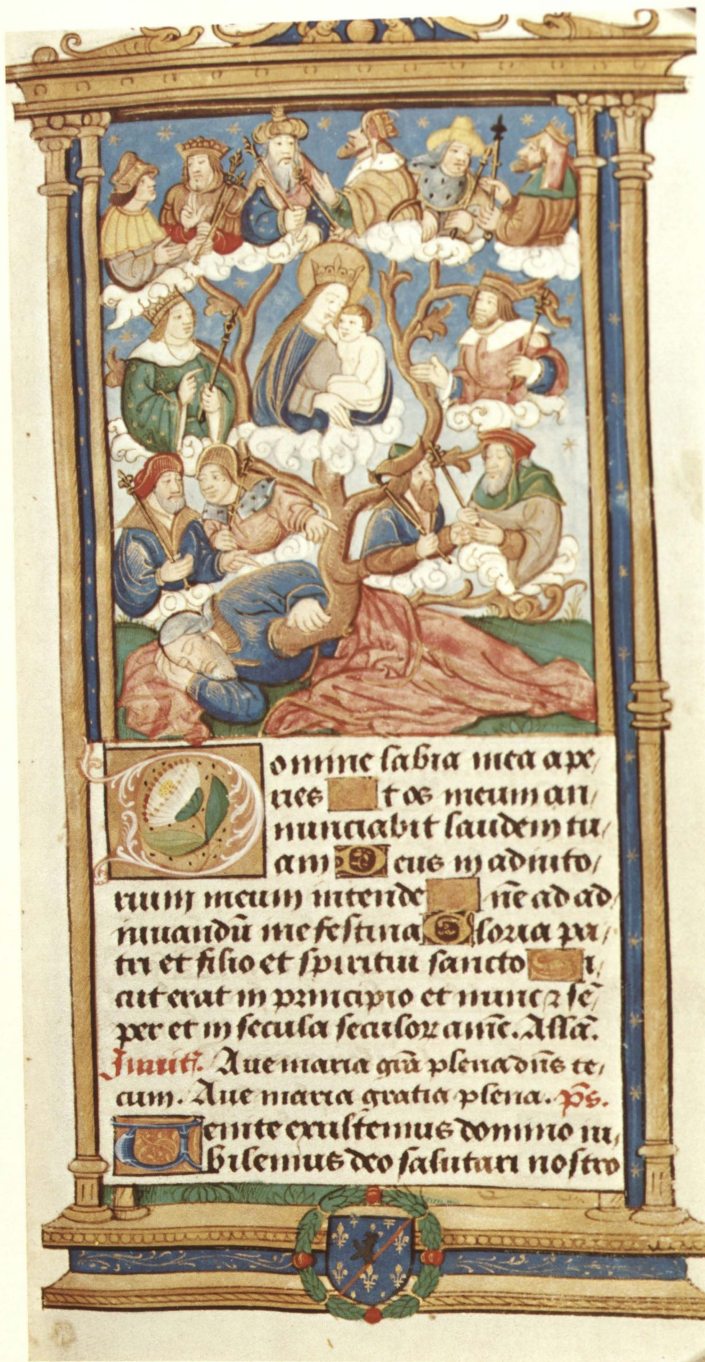 Domine labia mea ape/
ries et os meum an/
nunciabit laudem tu/
am Deus in adiuto/
rium meum intende ne ad ad
iuuandū me festina Gloria pa/
tri et filio et spiritui sancto Si/
cut erat in principio et nunc ⁊ sē/
per et in secula seculoꝝ amē. Alla.
Inuit. Aue maria grā plena dn̄s te/
cum. Aue maria gratia plena. p̄s.
Uenite exultemus domino iu/
bilemus deo salutari nostro